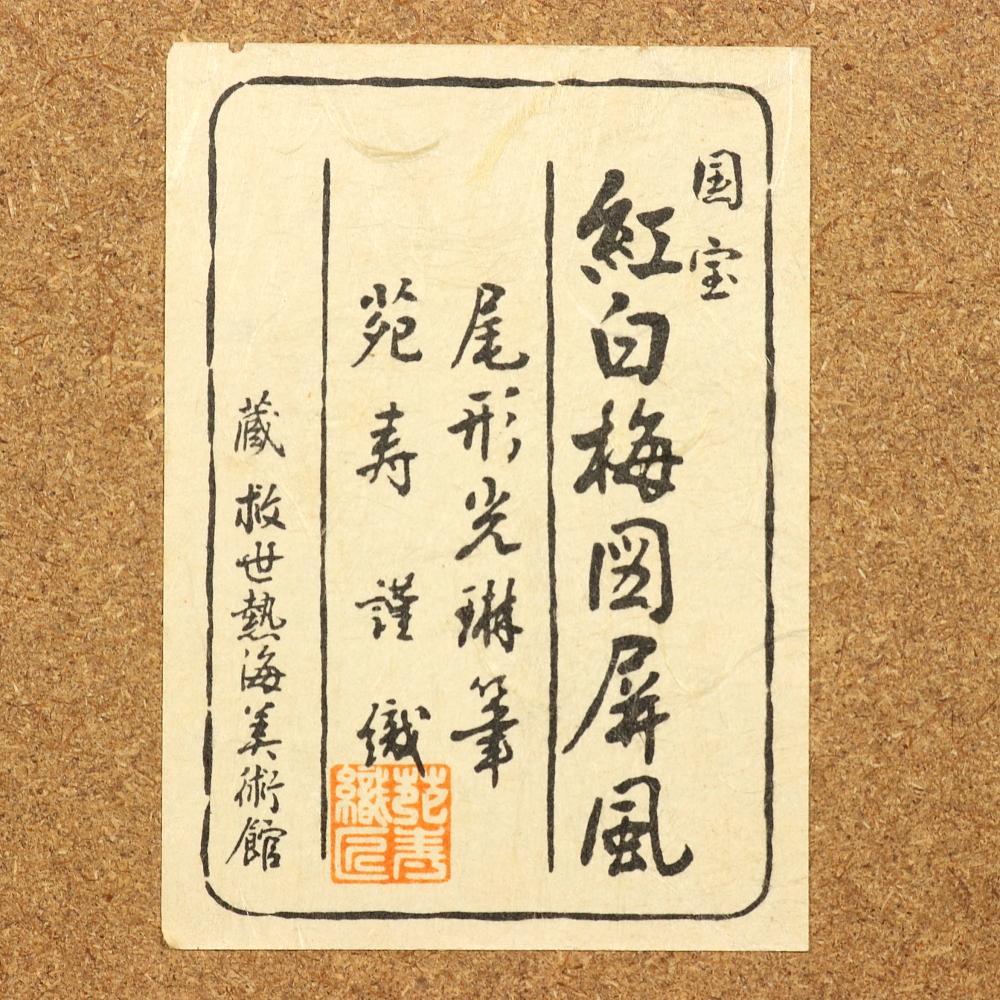 国宝
紅白梅図屏風
尾形光琳筆
苑寿謹織
苑寿織匠
蔵 救世熱海美術館